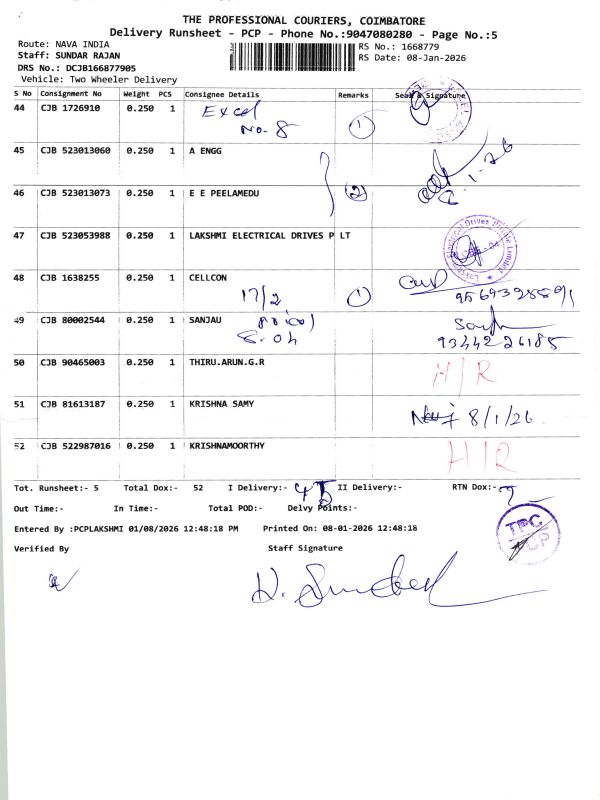 THE PROFESSIONAL COURIERS, COIMBATORE
Delivery Runsheet - PCP - Phone No.:9047080280 - Page No.:5
Route: NAVA INDIA
RS No.: 1668779
Staff: SUNDAR RAJAN
RS Date: 08-Jan-2026
DRS No.: DCJB166877905
Vehicle: Two Wheeler Delivery
S No Consignment No Weight PCS Consignee Details Remarks Seal & Signature
44 CJB 1726910 0.250 1 Excel
No. 8 1
45 CJB 523013060 0.250 1 A ENGG
46 CJB 523013073 0.250 1 E E PEELAMEDU 2
47 CJB 523053988 0.250 1 LAKSHMI ELECTRICAL DRIVES P LT
48 CJB 1638255 0.250 1 CELLCON
17/2 1
49 CJB 80002544 0.250 1 SANJAU
9344226185
50 CJB 90465003 0.250 1 THIRU.ARUN.G.R H/R
51 CJB 81613187 0.250 1 KRISHNA SAMY 8/1/26
52 CJB 522987016 0.250 1 KRISHNAMOORTHY H/R
Tot. Runsheet:- 5 Total Dox:- 52 I Delivery:- 45 II Delivery:- RTN Dox:- 7
Out Time:- In Time:- Total POD:- Delvy Points:-
Entered By :PCPLAKSHMI 01/08/2026 12:48:18 PM Printed On: 08-01-2026 12:48:18
TPC
PCP
Verified By Staff Signature